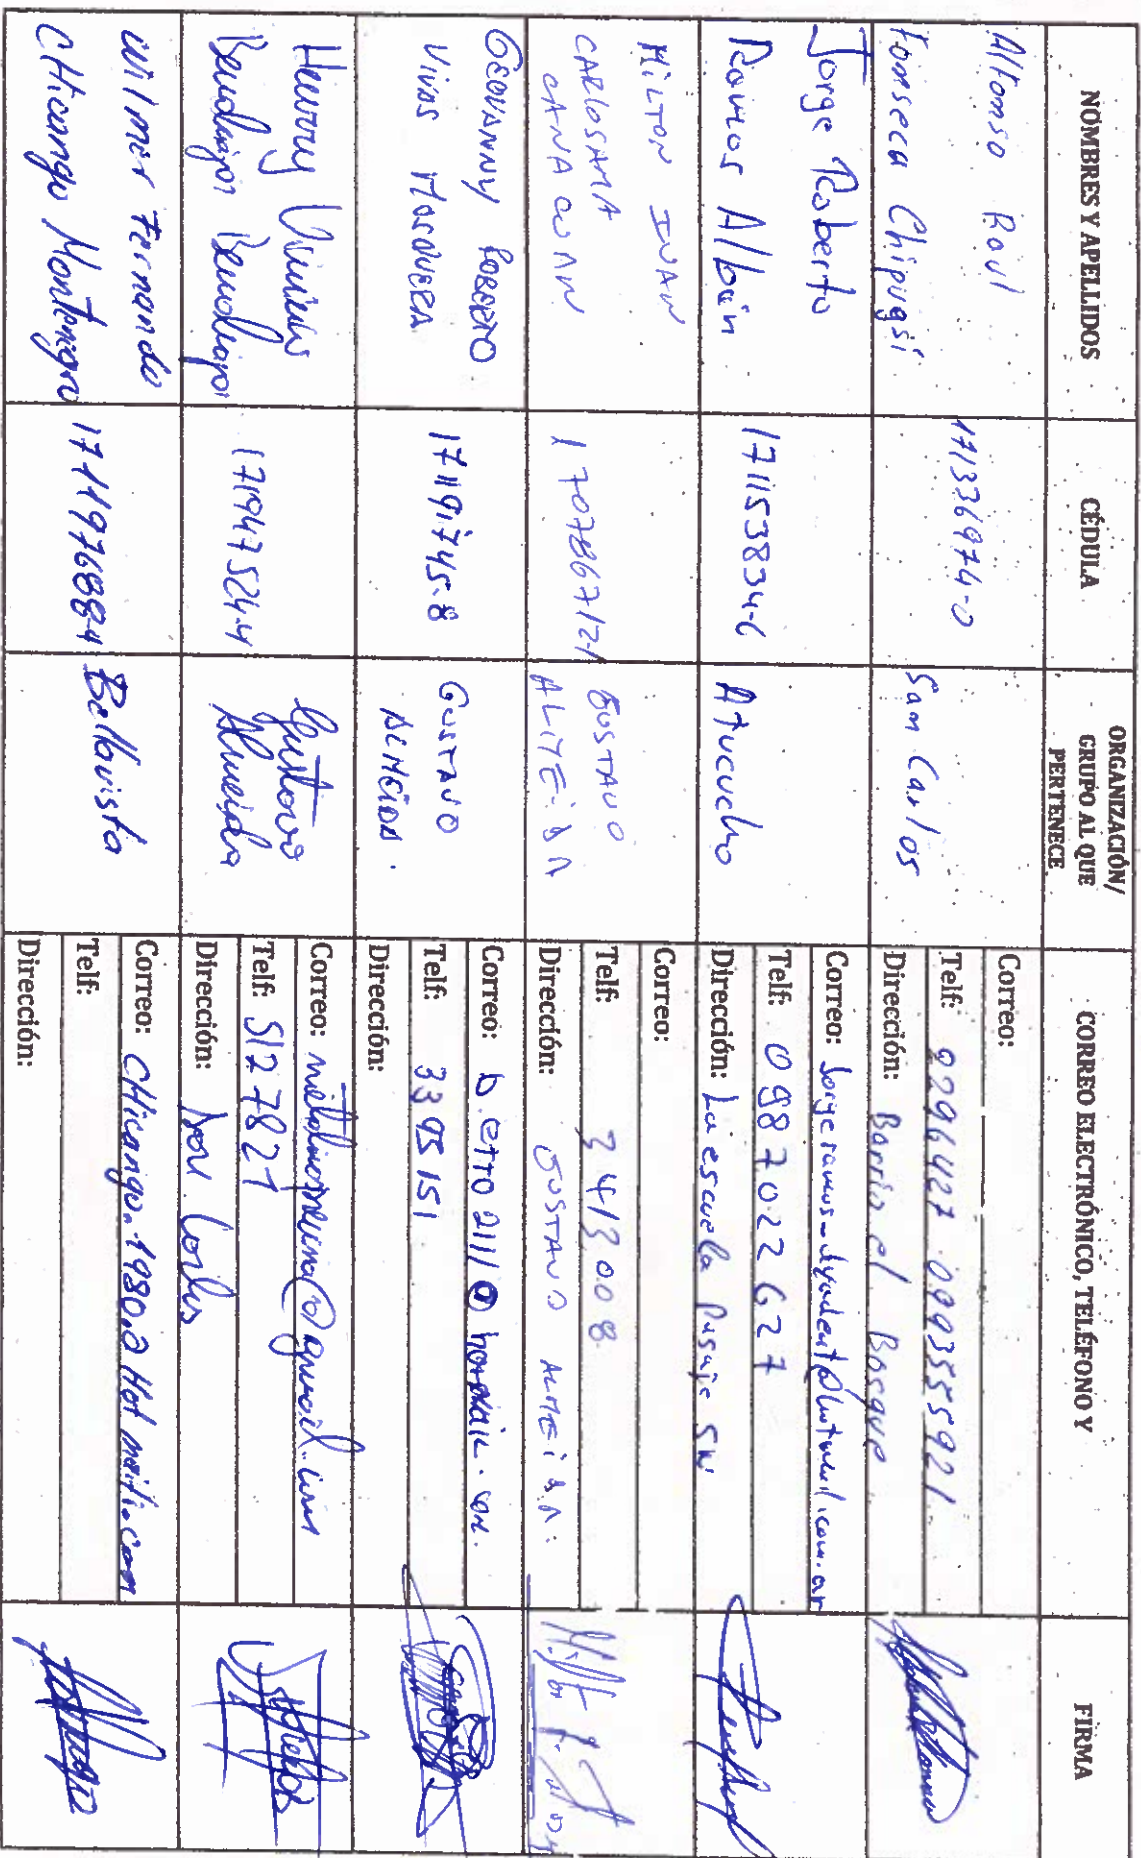 NOMBRES Y APELLIDOS
CÉDULA
ORGANIZACIÓN/
GRUPO AL QUE
PERTENECE
CORREO ELECTRÓNICO, TELÉFONO Y
FIRMA
Alfonso Raul
Fonseca Chipugsi
171336974-0
San Carlos
Correo:
Telf: 2296427 0993555921
Dirección: Barrio el Bosque
Jorge Roberto
Ramos Albán
171153834-6
Atucucho
Correo:
Telf: 0987022627
Dirección: La escuela Pasaje SN
MILTON IVAN
CARLOSAMA
CANACUAN
170786712-1
GUSTAVO
ALMEIDA
Correo:
Telf: 3413008
Dirección: GUSTAVO ALMEIDA
GEOVANNY ROBERTO
VIVAS MOSQUERA
171191745-8
GUSTAVO
ALMEIDA.
Correo: b.etto2111@hotmail.com.
Telf: 3395151
Dirección:
Henry Vinicio
171947524-4
Gustavo
Almeida
Correo:
Telf: 5127821
Dirección: San Carlos
Wilmer Fernando
CHicango Montenegro
171197688-4
Bellavista
Correo: CHicango.1980@Hotmail.com
Telf:
Dirección: